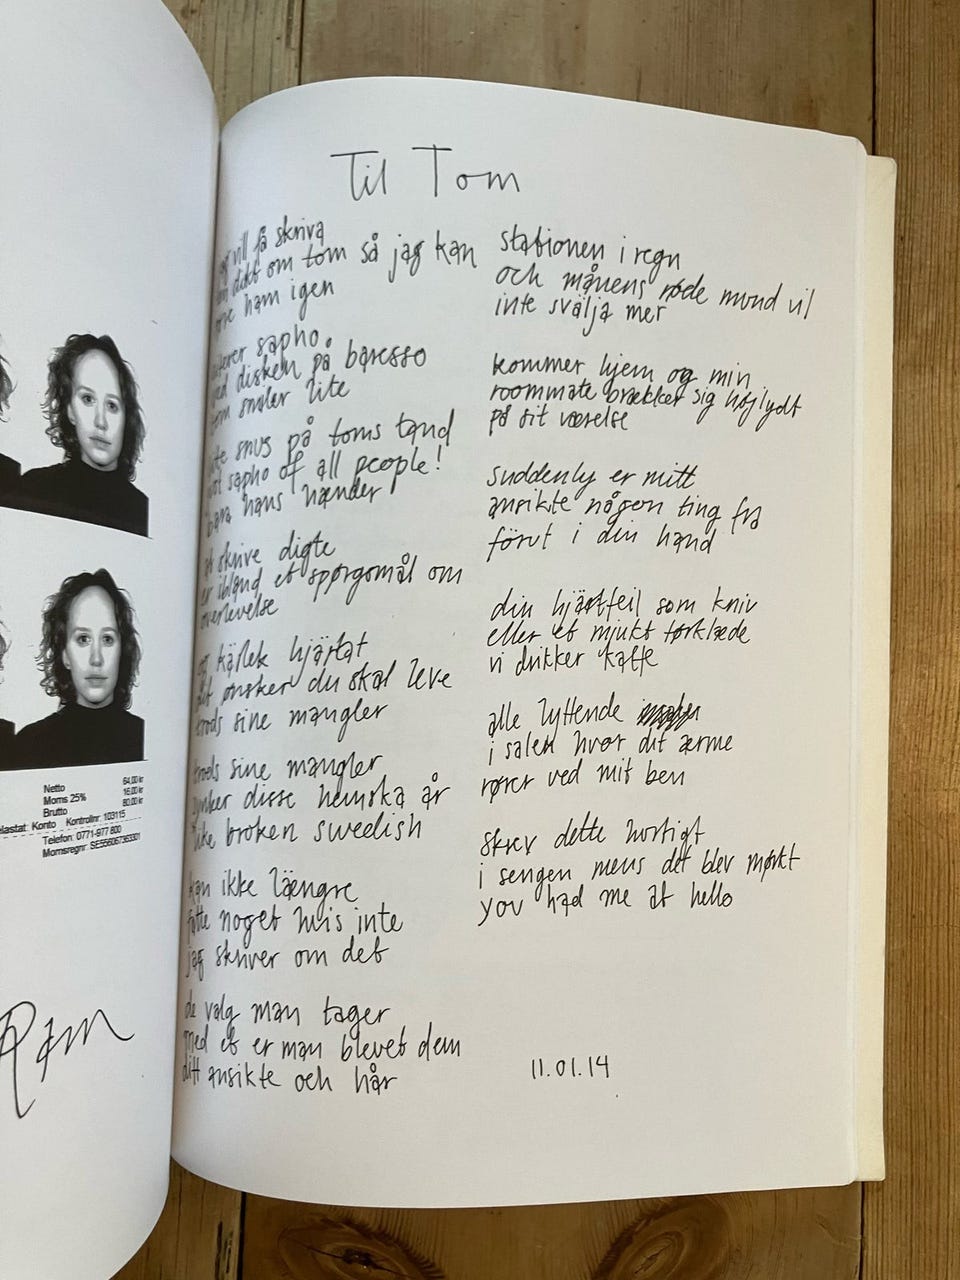 Netto 64,00 kr
Moms 25% 16,00 kr
Brutto 80,00 kr
Konto Kontrollnr. 103115
Telefon: 0771-977 800
Momsregnr. SE556067363301
Til Tom
vill få skriva
dikt om tom så jag kan
ham igen
sapho
disken på baresso
smiler lite
snus på toms tand
sapho of all people!
bara hans hænder
skrive digte
er ibland et spørgsmål om
overlevelse
kärlek hjärtat
ønsker du skal leve
trods sine mangler
trods sine mangler
disse hemska år
like broken swedish
kan ikke længre
fatte noget hvis inte
jag skriver om det
de valg man tager
med et er man blevet dem
ditt ansikte och hår
stationen i regn
och månens røde mund vil
inte svälja mer
kommer hjem og min
roommate brækker sig højlydt
på sit værelse
suddenly er mitt
ansikte någon ting fra
förut i din hand
din hjärtfeil som kniv
eller et mjukt tørklæde
vi drikker kaffe
alle lyttende
i salen hvor dit ærme
rører ved mit ben
skrev dette hurtigt
i sengen mens det blev mørkt
you had me at hello
11.01.14